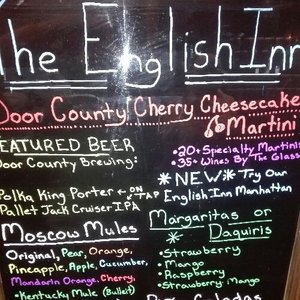 The English Inn
Door County Cherry Cheesecake
Martini
FEATURED BEER
Door County Brewing:
Polka King Porter ← ON
Pallet Jack Cruiser IPA TAP
Moscow Mules
Original, Pear, Orange,
Pineapple, Apple, Cucumber,
Mandarin Orange, Cherry,
•Kentucky Mule (Bulleit)
•20+ Specialty Martini
•35+ Wines By The Glass
*NEW* Try Our
English Inn Manhattan
Margaritas or
* Daquiris *
•Strawberry
•Mango
•Raspberry
•Strawberry Mango